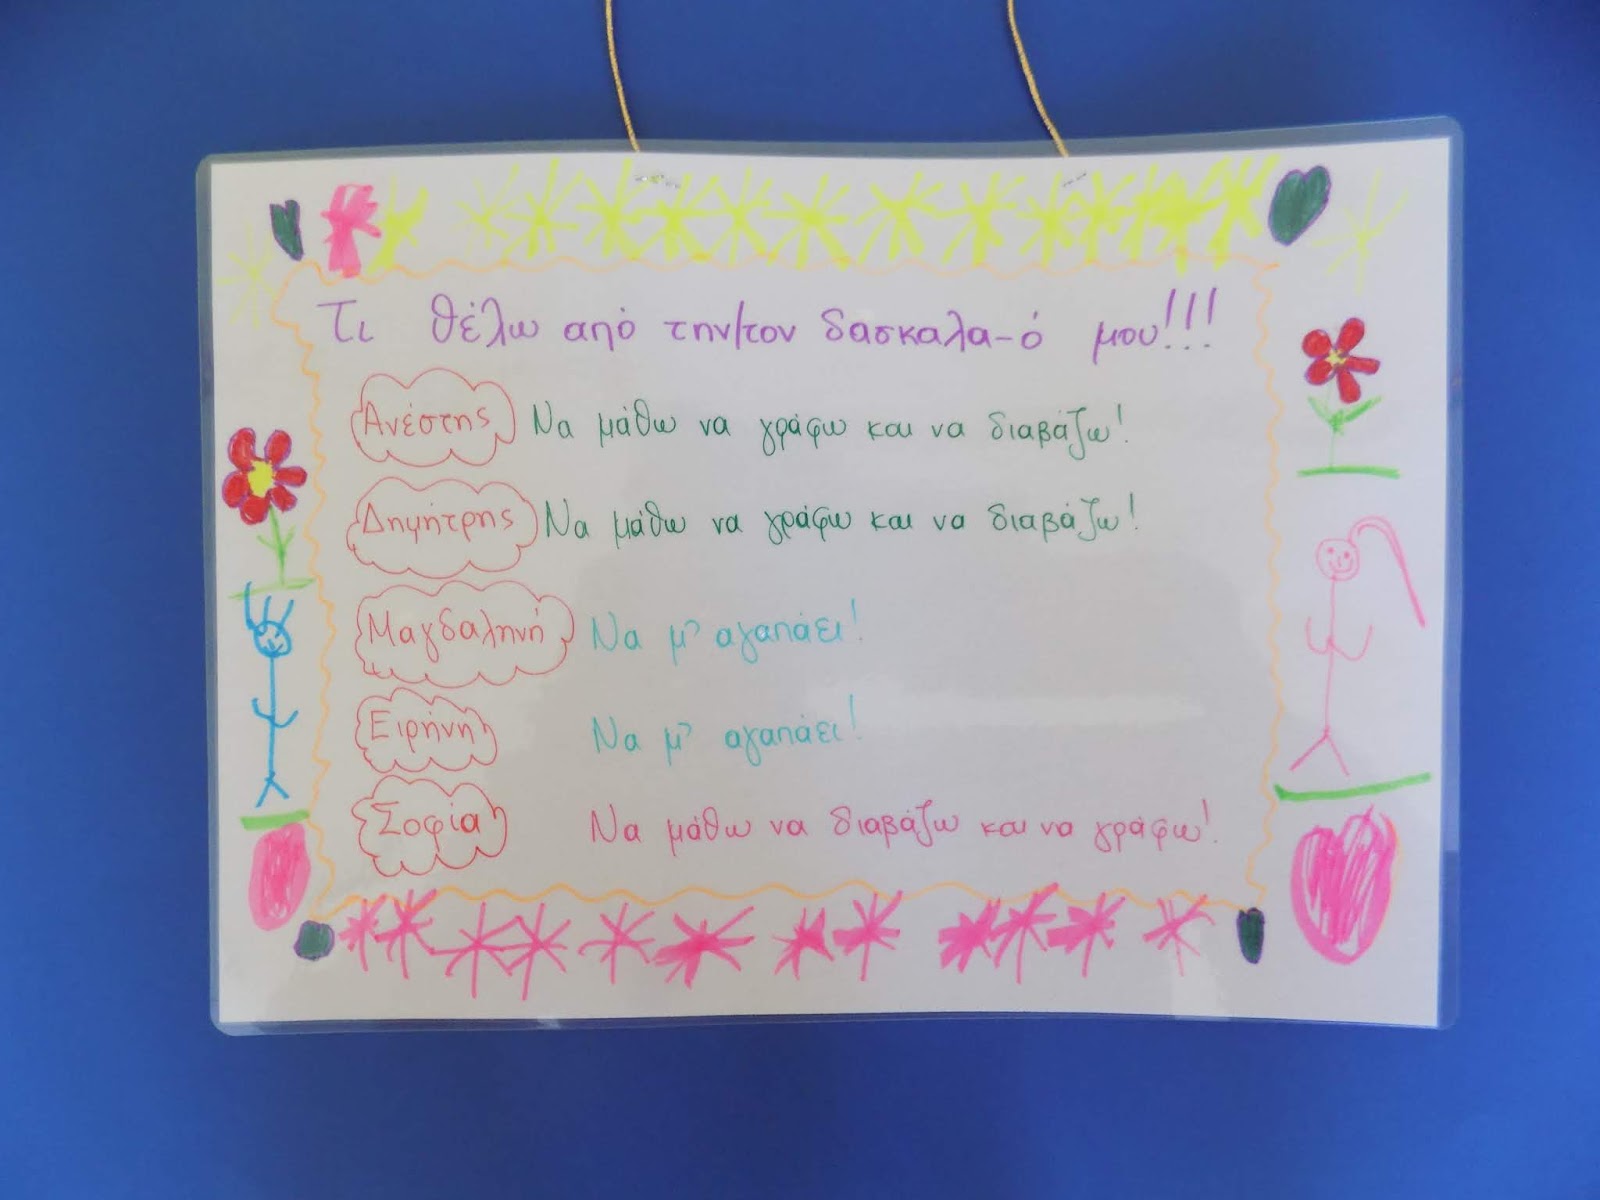 Τι θέλω από την/τον δασκαλα-ό μου!!!
Ανέστης Να μάθω να γράφω και να διαβάζω!
Δημήτρης Να μάθω να γράφω και να διαβάζω!
Μαγδαληνή Να μ' αγαπάει!
Ειρήνη Να μ' αγαπάει!
Σοφία Να μάθω να διαβάζω και να γράφω!